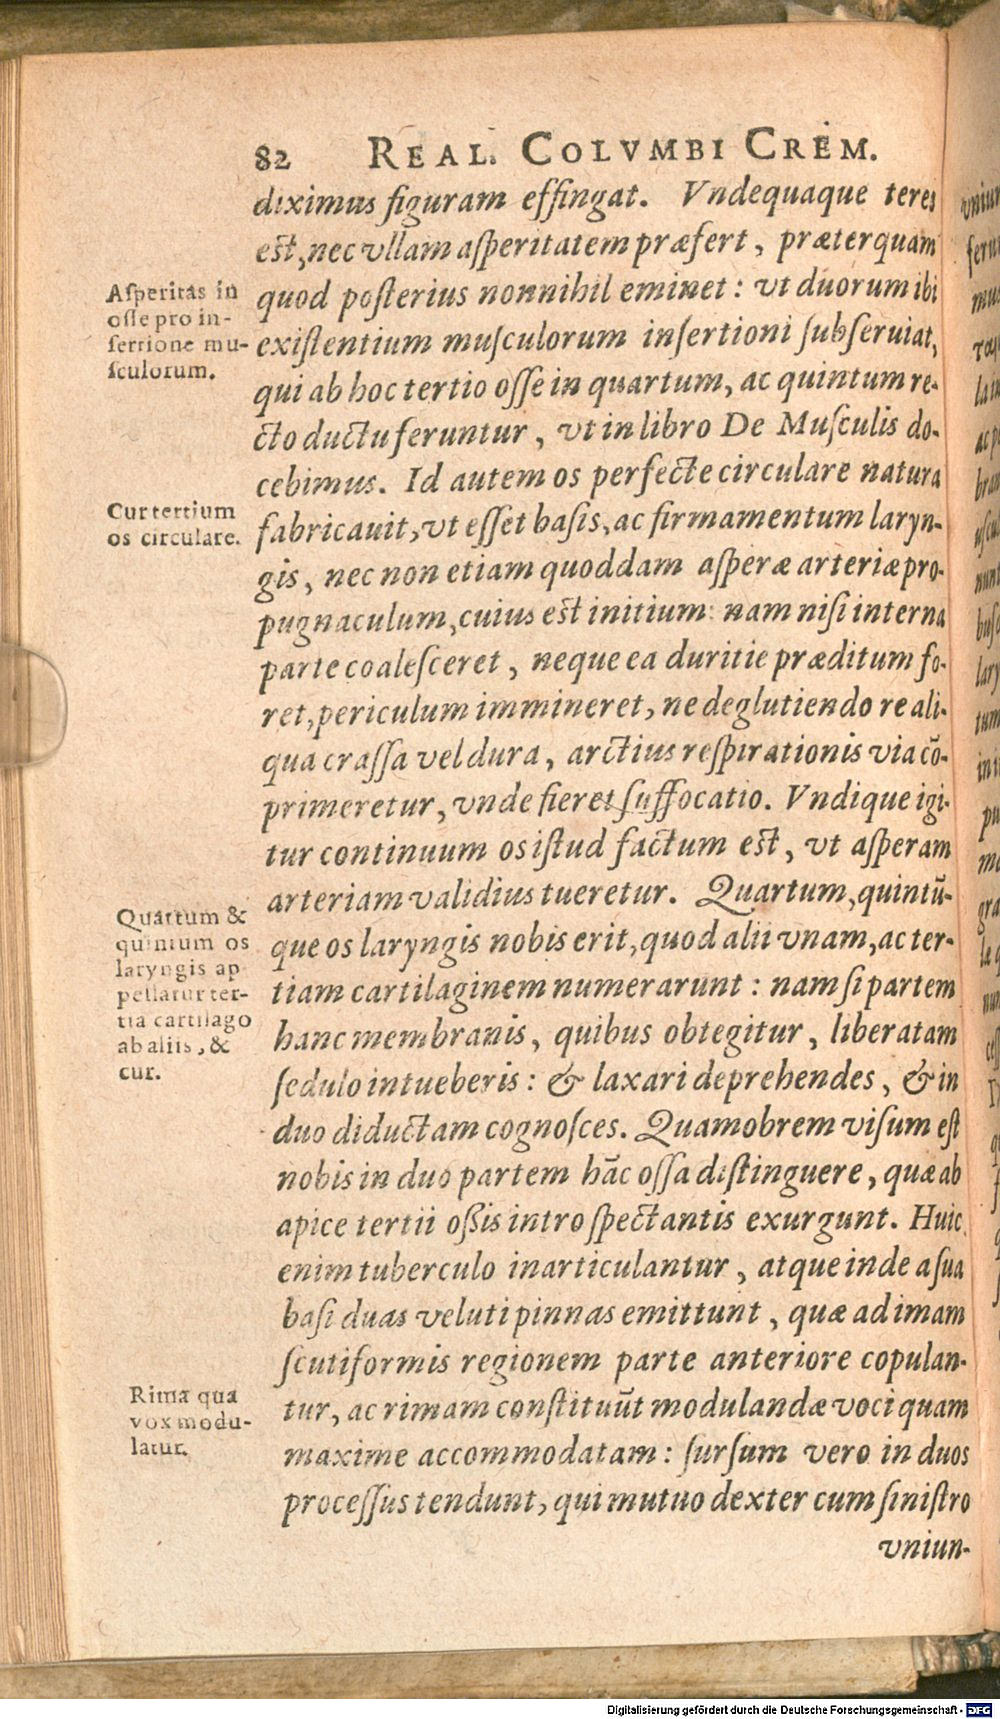 82 REAL. COLVMBI CREM.
diximus figuram effingat. Vndequaque teres
est, nec vllam aſperitatem præfert, præterquam
quod poſterius nonnihil eminet: vt duorum ibi
exiſtentium muſculorum inſertioni ſubſeruiat,
qui ab hoc tertio oſſe in quartum, ac quintum re-
cto ductu feruntur, vt in libro De Muſculis do-
cebimus. Id autem os perfecte circulare natura
fabricauit, vt eſſet baſis, ac firmamentum laryn-
gis, nec non etiam quoddam aſperæ arteriæ pro-
pugnaculum, cuius est initium: nam niſi interna
parte coaleſceret, neque ea duritie præditum fo-
ret, periculum immineret, ne deglutiendo re ali-
qua craſſa vel dura, arctius reſpirationis via cō-
primeretur, vnde fieret ſuffocatio. Vndique igi-
tur continuum os iſtud factum est, vt aſperam
arteriam validius tueretur. Quartum, quintū-
que os laryngis nobis erit, quod alii vnam, ac ter-
tiam cartilaginem numerarunt: nam ſi partem
hanc membranis, quibus obtegitur, liberatam
ſedulo intueberis: & laxari deprehendes, & in
duo diductam cognoſces. Quamobrem viſum eſt
nobis in duo partem hāc oſſa diſtinguere, quæ ab
apice tertii oſsis introſpectantis exurgunt. Huic
enim tuberculo inarticulantur, atque inde a ſua
baſi duas veluti pinnas emittunt, quæ ad imam
ſcutiformis regionem parte anteriore copulan-
tur, ac rimam conſtituūt modulandæ voci quam
maxime accommodatam: ſurſum vero in duos
proceſſus tendunt, qui mutuo dexter cum ſiniſtro
vniun-
Aſperitas in
oſſe pro in-
ſertione mu-
ſculorum.
Cur tertium
os circulare.
Quartum &
quintum os
laryngis ap
pellatur ter-
tia cartilago
ab aliis, &
cur.
Rima qua
vox modu-
latur.
Digitalisierung gefördert durch die Deutsche Forschungsgemeinschaft - DFG